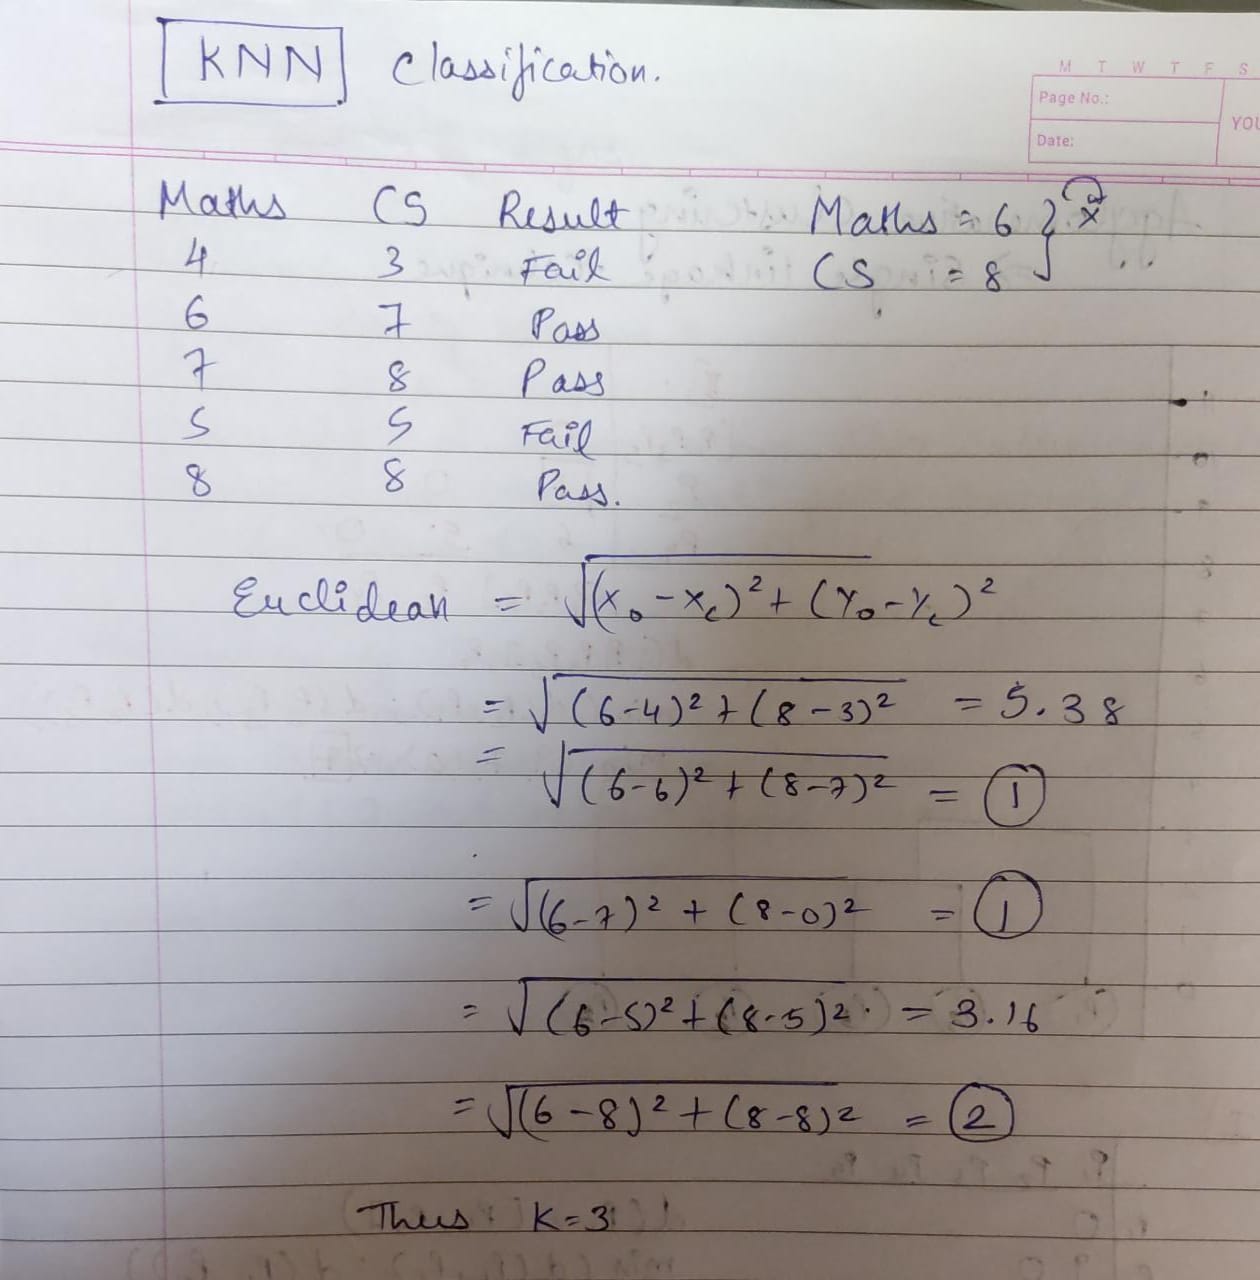 KNN Classification.
M T W T F S
Page No.:
YOU
Date:
Maths CS Result Maths = 6 } x
4 3 Fail CS = 8
6 7 Pass
7 8 Pass
5 5 Fail
8 8 Pass.
Euclidean = √(x₀-x꜀)² + (Y₀-Y꜀)²
= √(6-4)² + (8-3)² = 5.38
= √(6-6)² + (8-7)² = 1
= √(6-7)² + (8-0)² = 1
= √(6-5)² + (8-5)2. = 3.16
= √(6-8)² + (8-8)2 = 2
Thus K=3